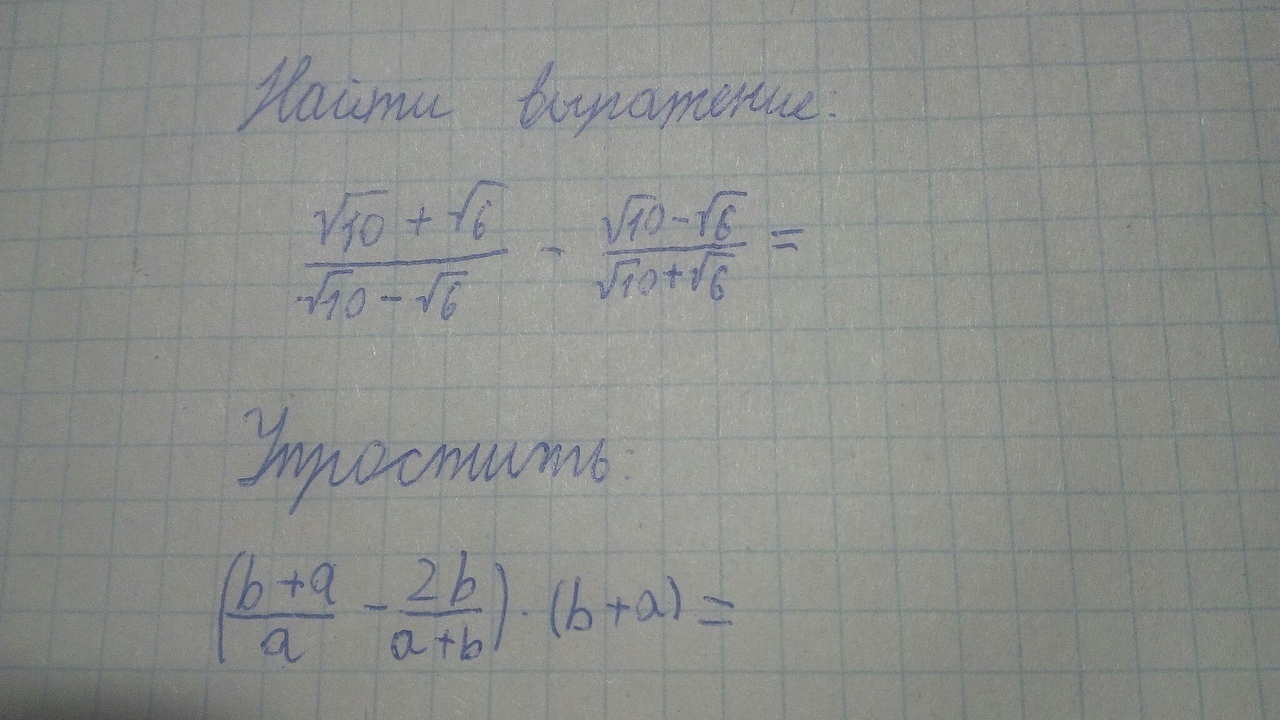 Найти выражение:
(√10 + √6)/(√10 - √6) - (√10 - √6)/(√10 + √6) =
Упростить:
((b+a)/a - 2b/(a+b)) · (b+a) =